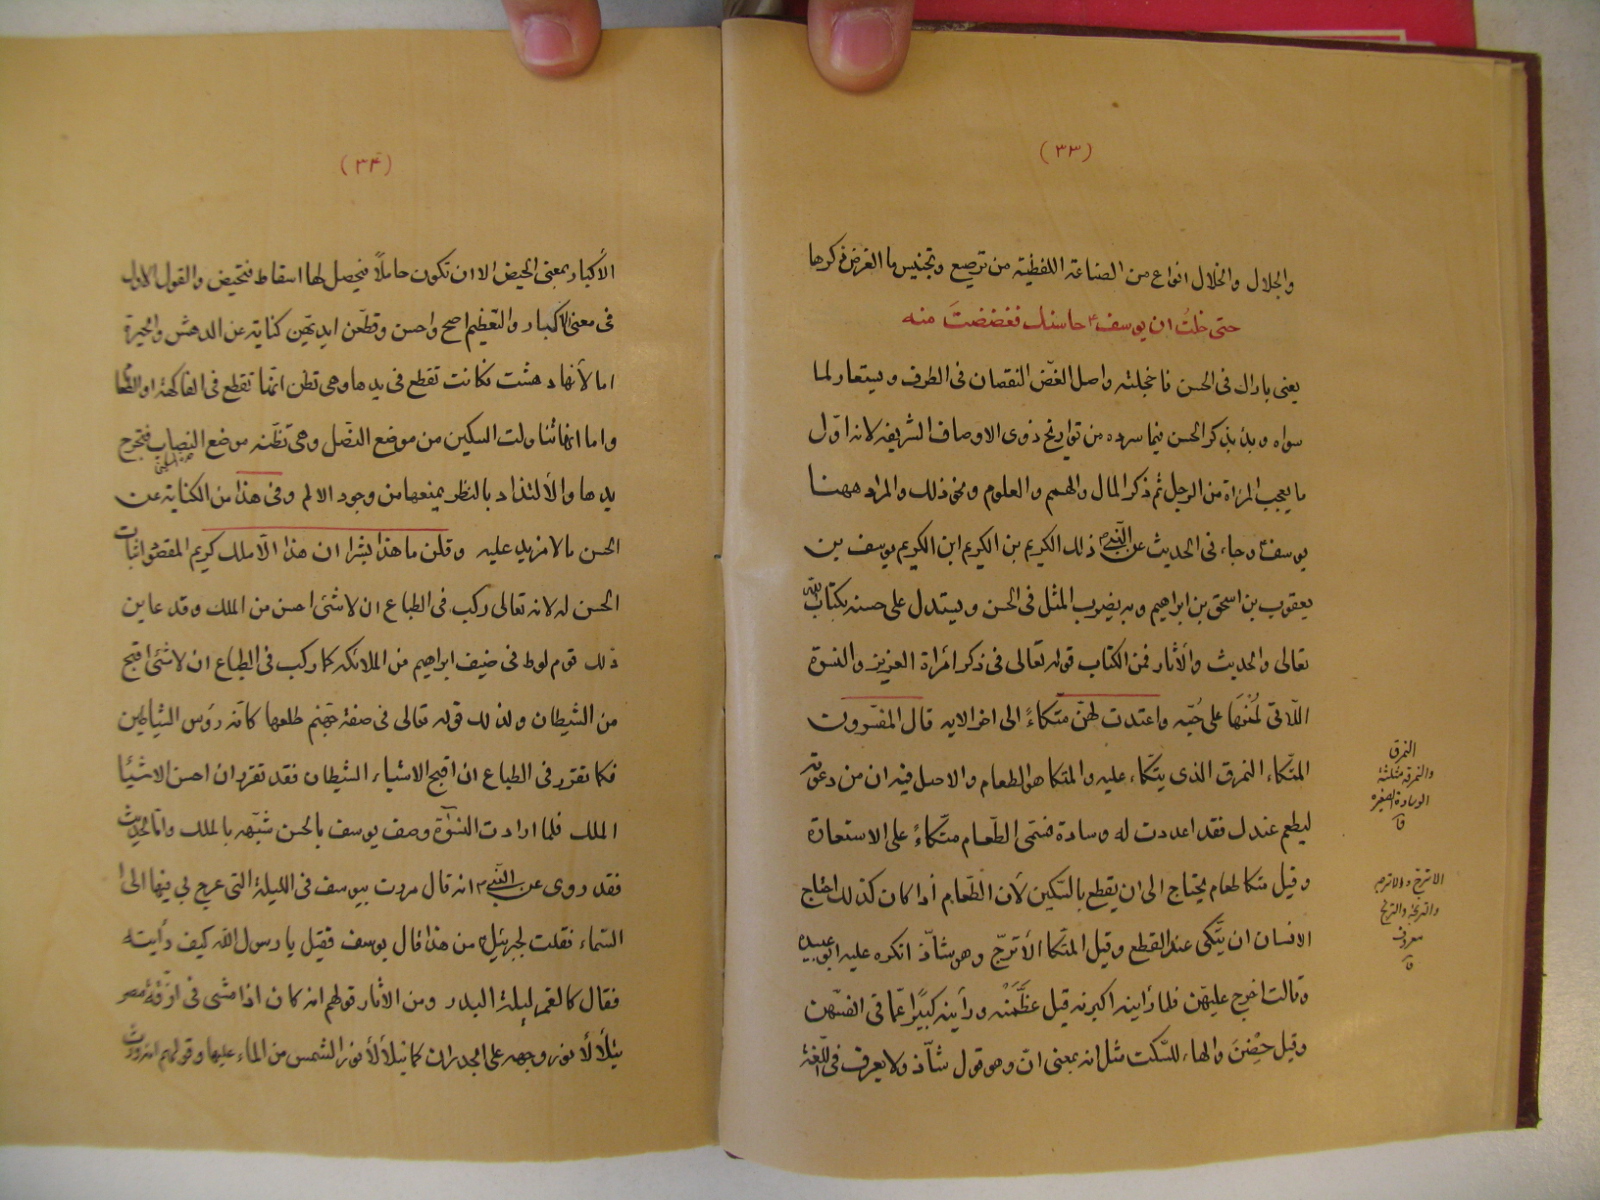 (٣٣)
والجلال والخلال انواع من الصناعة اللفظية من ترصيع وتجنيس ما الغرض ذكرها
حتى خلتُ ان يوسف ع حاسنك فغضضتَ منه
يعنى باراك فى الحسن فاخجلته واصل الغضّ النقصان فى الطرف ويستعار لما
سواه وبدء بذكر الحسن فيما سرده من تواريخ ذوى الاوصاف الشريفه لانه اوّل
ما يعجب المرءة من الرجل ثم ذكر المال والهمم والعلوم ونحو ذلك والمراد ههنا
يوسف ع وجاء فى الحديث عن النّبى ذلك الكريم بن الكريم ابن الكريم يوسف بن
يعقوب بن اسحق بن ابراهيم وبه يضرب المثل فى الحسن ويستدل على حسنه بكتاب اللّه
تعالى والحديث والآثار فمن الكتاب قوله تعالى فى ذكر امراة العزيز والنسوة
اللّاتى لُمْنَهَا على حُبّه واعتدت لهنّ متكاءً الى اخر الايه قال المفسّرون
المتّكاء النمرق الذى يتكّاء عليه والمتكا هو الطعام والاصل فيه ان من دعوته
ليطعم عندك فقد اعددت له وسادة فسمّى الطّعام متّكاءً على الاستعارة
وقيل متكا طعام يحتاج الى ان يقطع بالسّكين لأن الطّعام أذا كان كذلك احتاج
الانسان ان يتّكى عند القطع وقيل المتّكا الأترجّ وهو شاذّ انكره عليه ابو عبيده
وقالت اخرج عليهّن فلما رأينه اكبرنه قيل عظَّمْنَه ورأينه كبيًرا عمّا فى انفسّهن
وقيل حِضْنَ والهاء للسّكت مثل انه بمعنى انّ وهو قول شاّذ ولا يعرف فى اللّغة
النمرق
والنمرقه مثلثة
الوسادة الصغيره
ق
الاترج والاترجه
والترنجة والترنج
معروف
ق
(٣٤)
الأكبار بمعنى الحيض الا ان تكون حاملاً فيحصل لها اسقاط فتحيض والقول الاول
فى معنى الاكبار والتعظيم اصح واحسن وقطّعن ايديّهن كناية عن الدهش والحيرة
اما لأنها دهشت فكانت تقطع فى يدها وهى تظن انّها تقطع فى الفاكهة او الطعام
واما انها تناولت السكين من موضع النصّل وهى تظّنه موضع النصاب فتجرح
يدها والألتذاذ بالنظر يمنعها من وجود الالم وفى هذا من الكناية عن
الحسن ما لا مزيد عليه وقلن ما هذا بشرا ان هذا الّا ملك كريم المقصود اثبات
الحسن له لانه تعالى ركب فى الطباع ان لا شئ احسن من الملك وقد عاين
ذلك قوم لوط فى ضيف ابراهيم من الملائكه كما ركب فى الطباع ان لا شئ اقبح
من الشيطان ولذلك قوله تعالى فى صفة جهّنم طلعها كانّه رؤس الشياطين
فكما تقرر فى الطباع ان اقبح الاشياء الشيطان فقد تقرر ان احسن الاشياء
الملك فلما ارادت النسوة وصف يوسف بالحسن شبّهه بالملك وامّا الحديث
فقد روى عن النّبى ص انه قال مررت بيوسف فى الليلة التى عرج بى فيها الى
السّماء فقلت لجبرئيل من هذا قال يوسف فقيل يا رسول اللّه كيف رأيته
فقال كالقمر ليلة البدر ومن الآثار قولهم انه كان اذا مشى فى ازقّة مصر
يتلألأ نور وجهه على الجدران كما يتلألأ نور الشمس من الماء عليها وقولهم انه ورث